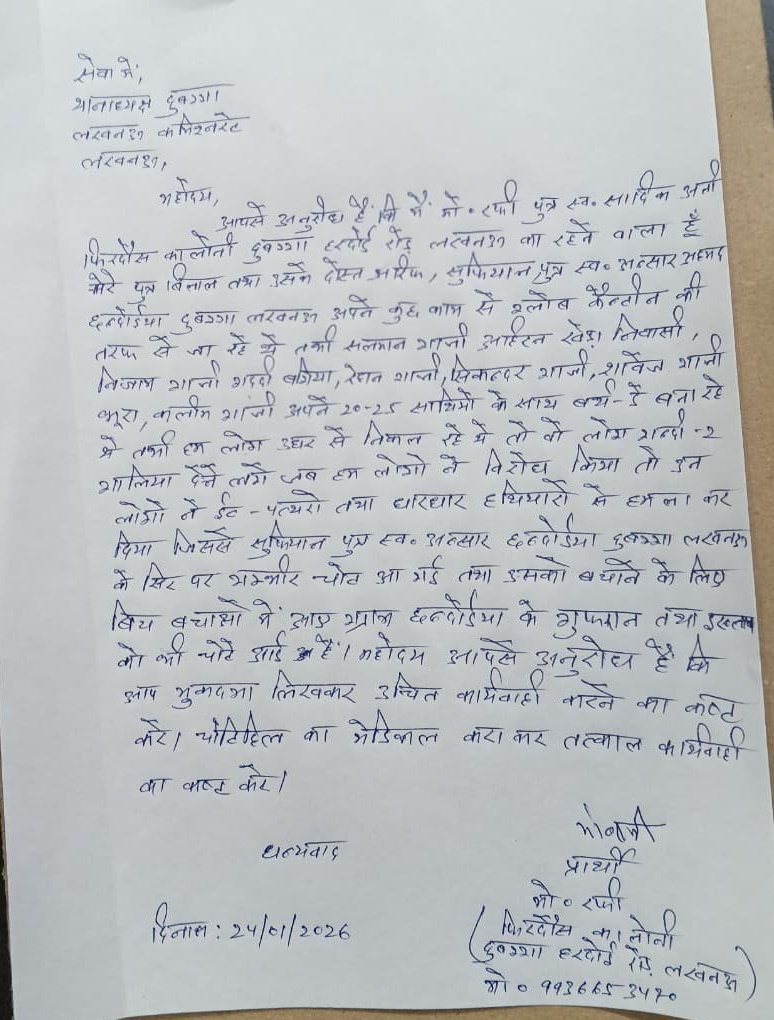 सेवा में,
थानाध्यक्ष दुबग्गा
लखनऊ कमिश्नरेट
लखनऊ,
महोदय,
आपसे अनुरोध है कि मैं मो० रफी पुत्र स्व० सादिक अली
फिरदौस कालोनी दुबग्गा हरदोई रोड लखनऊ का रहने वाला हूँ
मेरे पुत्र बिलाल तथा उसके दोस्त आरिफ, सुफियान पुत्र स्व० अन्सार अहमद
छन्दोईया दुबग्गा लखनऊ अपने कुछ काम से श्लोब कैन्टीन की
तरफ से जा रहे थे तभी सलमान गाजी निवासी,
निजाम गाजी गददी बगिया, रेहान गाजी, सिकन्दर गाजी, शावेज गाजी
भूरा, कलीम गाजी अपने 20-25 साथियो के साथ बर्थ-डे बना रहे
थे तभी हम लोग उधर से निकल रहे थे तो वो लोग गन्दी-2
गालिया देने लगे जब हम लोगो ने विरोध किया तो उन
लोगो ने ईट-पत्थरो तथा धारधार हथियारो से हमला कर
दिया जिससे सुफियान पुत्र स्व० अन्सार छन्दोईया दुबग्गा लखनऊ
के सिर पर गम्भीर चोट आ गई तथा उसको बचाने के लिए
बिच बचाओ में आए ग्राम छन्दोईया के गुफरान तथा
को भी चोटे आई है। महोदय आपसे अनुरोध है कि
आप मुकदमा लिखकर उचित कार्यवाही करने का कष्ट
करे। चोटिहिल का मेडिकल करा कर तत्काल कार्यवाही
का कष्ट करे।
धन्यवाद
प्रार्थी
मो० रफी
(फिरदौस कालोनी
दुबग्गा हरदोई रोड लखनऊ)
दिनांक: 24/01/2026
मो० 9936653470